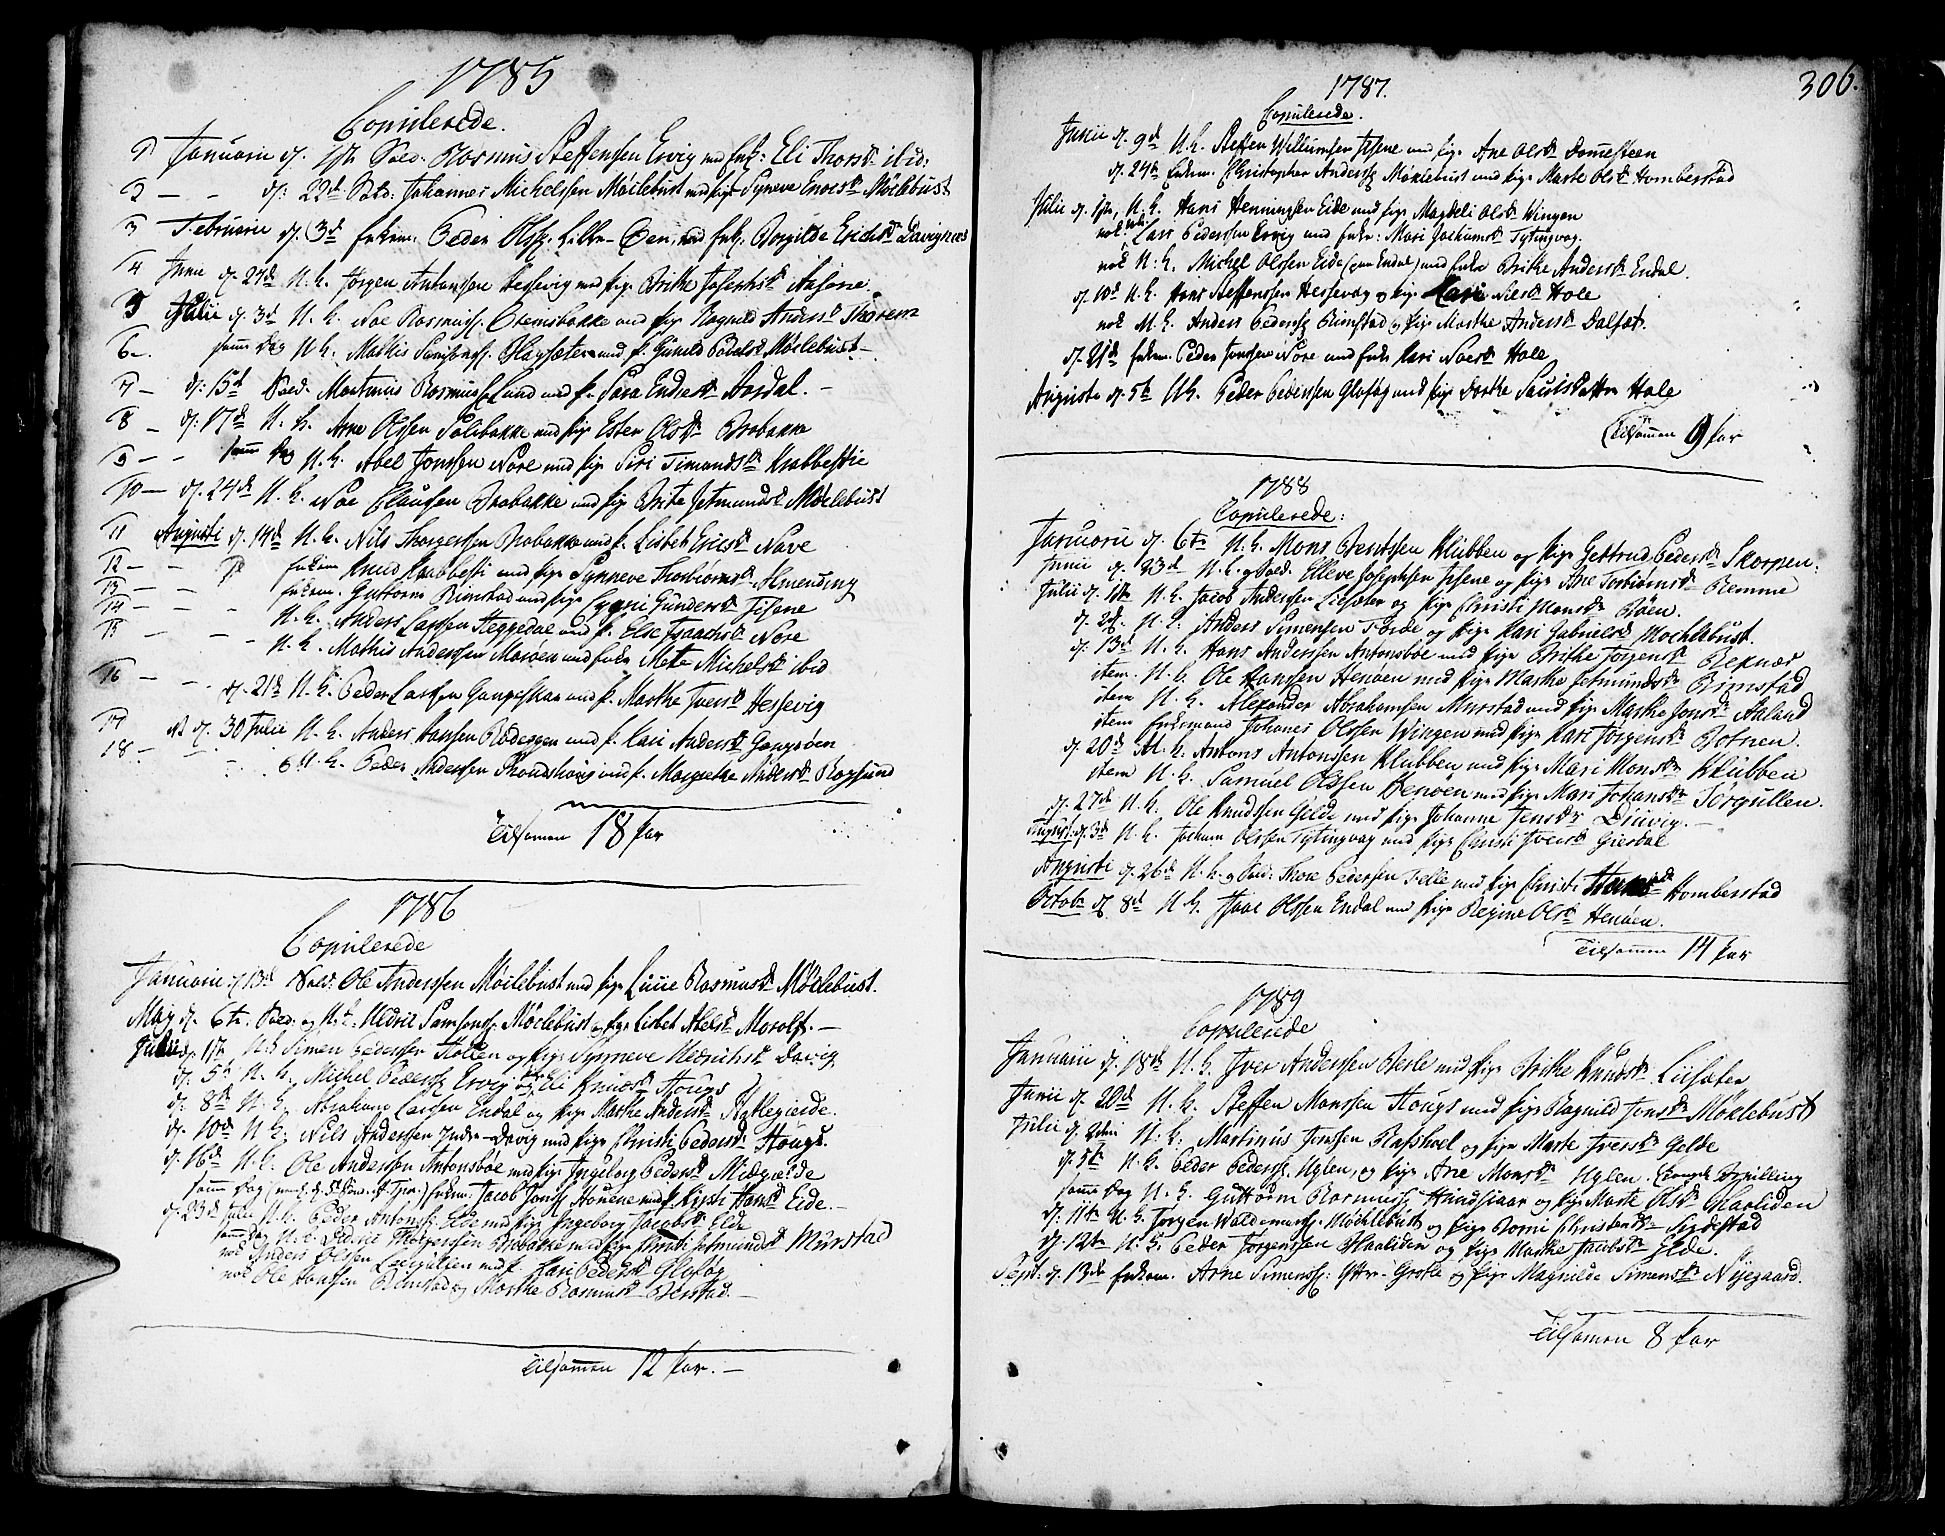 1785
Copulerede.
1 Januarii d. 1ste Sold. Rasmus Steffensen Ervig med Enk: Eli Thorsd. ibid:
2 - - d: 22d Sold. Johannes Michelsen Möclebust med pige Synneve Enoksd. Möclebust
3 Februarii d. 3d Enkem. Peder Olss. Lille- med Enk. Borgilde Erichsd. Davignes
4 Junii d. 24d U. K. Jörgen Antonsen Hessevig med pige Brithe Josephsd. Aasene
5 Julii d. 3d U. K. Noe Rasmuss. Steensbakke med pige Ragnild Andersd. Thorem
6 - samme Dag U. K. Mathis med p. Gunild Povelsd. Möclebust -
7 - d: 15d Sold. Martinus Rasmuss. Lund med p. Sara Endresd. Aardal. -
8 - d. 17d U. K. Arne Olssen Solibakke med pige Ester Olsd. Brobakke
9 - - samme Dag U. K. Abel Jonssen Nore med pige Siri Simonsd. Krabbestie
10 - d. 24d U. K. Noe Clausen Brobakke med pige Brite Jetmundsd. Möclebust
11 Augusti d. 14d U. K. Nils Thorgerssen Brobakke med p. Lisbet Ericsd. Nave
12 - - Enkem Knud Krabbesti med pige Synneve Thorbiörnsd. Almending
13 - - Enkem. Guttorm Rimstad med pige Gundersd. Tisene
14 - - - U. K. Anders Larssen Heggedal med p. Else Isaachsd. Nore
15 - - - U. K. Mathis Anderssen Moröen med Enke Mette Michelsd. ibid
16 - - d. 21d U. K. Peder Larssen Gangeskar med p. Marthe Iversd. Hessevig
17 d. 30 Julii U. K. Anders Hansen Rödseggen med p. Kari Andersd. Gangsöen
18 - - - U. K. Peder Anderssen med p. Margrethe Andersd. Rogsund
Tilsamen 18 Par
1786
Copulerede
Januarii d. 13d Sold. Ole Anderssen Möclebust med pige Lucie Rasmusd. Möclebust.
May d. 6te. Sold. og U. K. Hedric Samsonss. Möclebust og pige Lisbet Abelsd. Morolf. -
Julii d. 1ste U. K. Simen Pederssen Hollen og pige Synneve Hedrichsd. Davig
d. 5te U. K. Michel Pederss. Ervig og Eli Knudsd. Hougs
d. 8de U. K. Abraham Larssen Endal og pige Marthe Andersd. Aaklegierde.
d. 10de U. K. Nils Anderssen Indre-Davig med pige Christi Pedersd. Hougs.
d. 16de U. K. Ole Anderssen Antonsböe med pige Ingeborg Pedersd. Midgielde
samme Dag Enkem. Jacob Jonss. Honene med p. Kirsti Hansd. Eide. -
d. 23d Julii U. K. Peder Antonss. Elde med pige Ingeborg Jacobsd. Elde
samme Dag U. K. Thorgerssen Brobakke med pige Christi Jetmundsd. Murstad
nok Anders Olssen med p. Kari Pedersd. Glofög
nok Ole Hanssen Rimstad og Marthe Rasmusd. Rimstad. -
Tilsamen 12 Par. -
306.
1787.
Copulerede.
Junii d. 9d U. K. Steffen Willumsen Tisene med pige Ane Olsd. Domesteen
d. 24de Enkem. Christopher Anderss. Möclebust med pige Marte Olsd. Homberstad
Julii d. 1ste U. K. Hans Henningsen Eide med pige Magdeli Olsd. Wingen
nok Lars Pederssen Ervig med Enke: Mari Jochumsd. Tytingvog
nok U. K. Michel Olssen Eide (paa Endal) med Enke Brithe Andersd. Endal.
d. 10d U. K. Hans Steffenssen Hessevog og pige Kari Nilsd. Hole
nok U. K. Anders Pederss. Rimstad og pige Marthe Andersd. Dalsæt.
d. 21d Enkem. Peder Jonssen Nore med Enke Kari Noesd. Hole
Augusti d. 5te U. K. Peder Pederssen Gloföj med pige Dorthe Paulsdatter Hole
Tilsamen 9 Par
1788
Copulerede:
Januarii d. 6te U. K. Mons Bentssen Klubben og pige Gertrud Pedersd. Skorpen.
Junii d. 23d U. K. og Sold. Elleve Josephsen Tisene og pige Ane Torbiörnsd. Remme
Julii d. 1ste U. K. Jacob Anderssen Lilsæter og pige Christi Monsd. Röen.
d. 2d. U. K. Anders Simensen Förde og pige Kari Gabrielsd. Mochlebust.
d. 13d U. K. Hans Anderssen Antonsböe med pige Brithe Jörgensd. Reknær
item. U. K. Ole Hanssen Henöen med pige Marthe Jetmundsd. Rimstad
item U. K. Alexander Abrahamsen Murstad med pige Marthe Jonsd. Aaland
item Enkemand Johanes Olssen Wingen med pige Kari Jörgensd. Botnen.
d. 20d U. K. Antons Antonssen Klubben med pige Mari Monsd. Klubben
item U. K. Samuel Olssen Henöen med pige Mari Johansd. Törgullen.
d. 27de U. K. Ole Knudssen Gelde med pige Johanne Jensd. Diuvig. -
August. d. 3d U. K. Jochum Olssen Tytingvog med pige Christi Iversd. Giesdal
Augusti d. 26de U. K. og Sold: Thore Pedersen Felle med pige Christi Hansd. Homberstad
Octobr d. 8d U. K. Isaac Olssen Endal med pige Regine Olsd. Henöen.
Tilsammen 14 Par
1789
Copulerede
Januarii d. 18de U. K. Iver Anderssen Berle med pige Brithe Knudsd. Lilsæter
Junii d. 20de U. K. Steffen Monssen Hougs med pige Ragnild Jonsd. Möklebust
Julii d. 2den U. K. Martinus Jonssen Rafshoel og pige Marte Iversd. Gelde
d. 5te U. K. Peder Pederss. Uglen, og pige Ane Monsd. Uglen.
samme Dag U. K. Guttorm Rasmuss. Hundskaar og pige Marte Olsd. Maaliden
d. 11te U. K. Jörgen Waldemarss. Möchlebust og pige Romi Christensd. Sigdestad
d. 12te U. K. Peder Jörgenssen Maaliden og pige Marthe Jacobsd. Elde.
Sept. d. 13de Enkem. Arne Simenss: Ytter-Grotle og pige Magnilde Simensd. Nÿegaard.
Tilsamen 8 Par